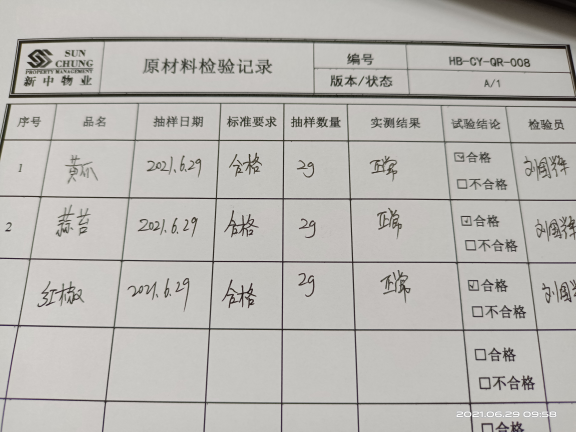 SUN CHUNG
PROPERTY MANAGEMENT
新中物业
原材料检验记录
编号 HB-CY-QR-008
版本/状态 A/1
序号 品名 抽样日期 标准要求 抽样数量 实测结果 试验结论 检验员
1 黄瓜 2021.6.29 合格 2g 正常 ☑合格 刘国辉
□不合格
2 蒜苔 2021.6.29 合格 2g 正常 ☑合格 刘国辉
□不合格
红椒 2021.6.29 合格 2g 正常 ☑合格 刘国
□不合格
□合格
□不合格
□合格
2021.06.29 09:58